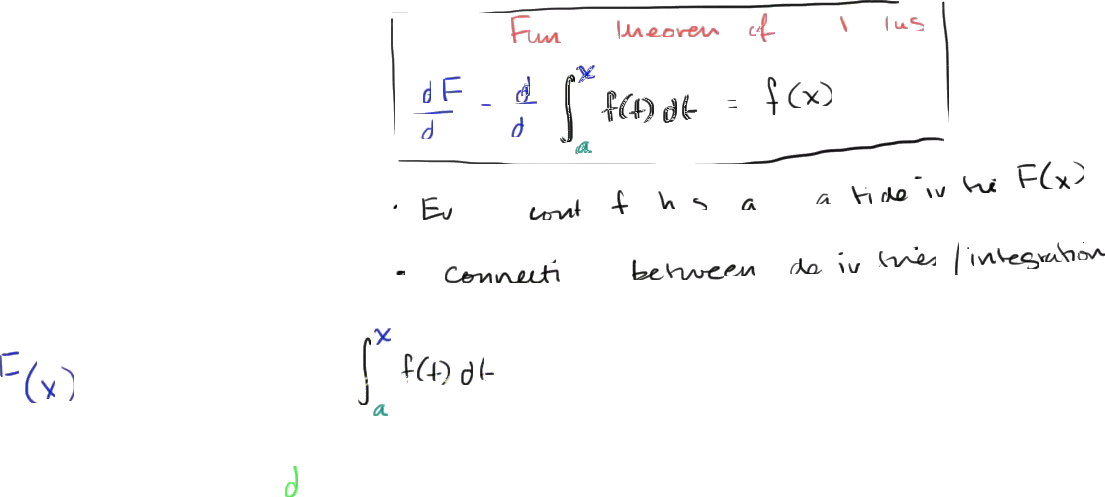 Fun theorem of
dF/d - d/d ∫_a^x f(t) dt = f(x)
· Ev cont f h s a a tide iv tive F(x)
- connecti between de iv tives / integration
F(x) ∫_a^x f(t) dt
d